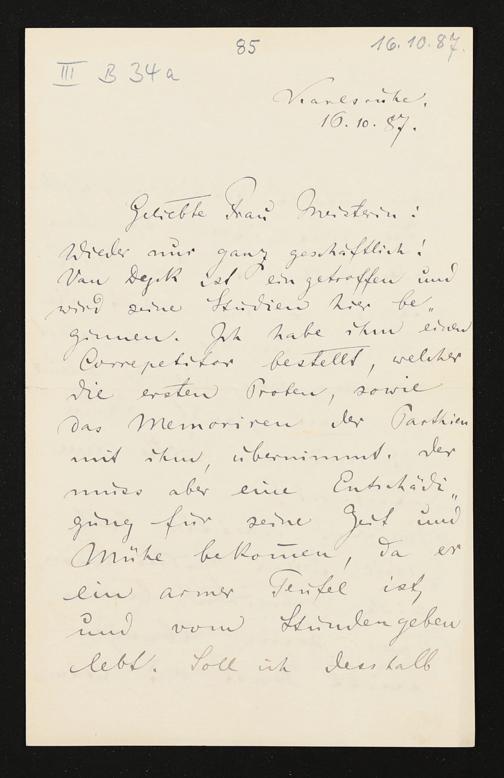 85
16.10.87.
III B 34a
Karlsruhe.
16.10.87.
Geliebte Frau Meisterin!
Wieder nur ganz geschäftlich!
Van Dyck ist eingetroffen und
wird seine Studien hier be„
ginnen. Ich habe ihm einen
Correpetitor bestellt, welcher
die ersten Proben, sowie
das Memoriren der Parthien
mit ihm, übernimmt. Der
muss aber eine Entschädi„
gung für seine Zeit und
Mühe bekom̄en, da er
ein armer Teufel ist,
und vom Stundengeben
lebt. Soll ich desshalb